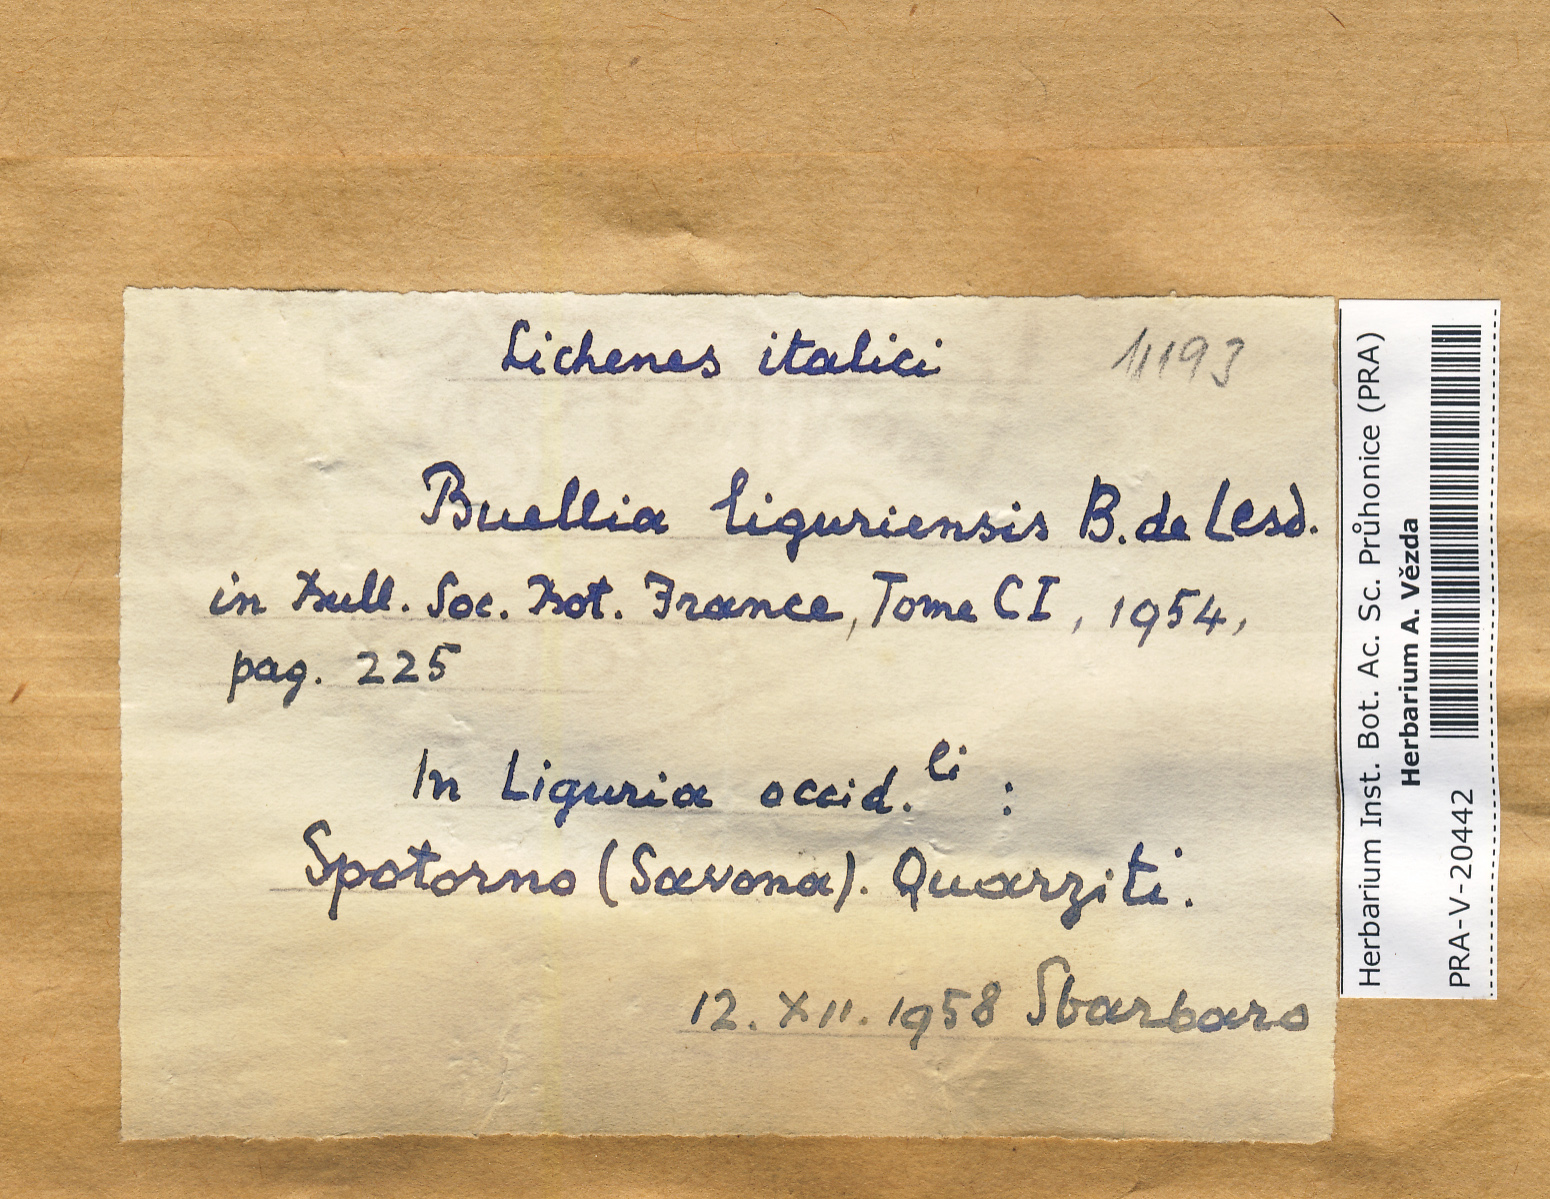 Lichenes italici 11193
Buellia liguriensis B. de Lesd.
in Bull. Soc. Bot. France, Tome CI, 1954,
pag. 225
In Liguria occid.li :
Spotorno (Savona). Quarziti.
12. XII. 1958 Sbarbaro
Herbarium Inst. Bot. Ac. Sc. Průhonice (PRA)
Herbarium A. Vězda
PRA-V-20442